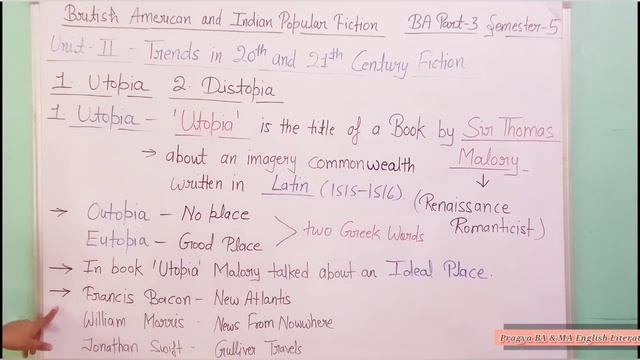 British American and Indian Popular Fiction BA Part-3 Semester-5
Unit-II - Trends in 20th and 21th Century Fiction
1. Utopia 2. Distopia
1. Utopia - 'Utopia' is the title of a Book by Sir Thomas
→ about an imagery commonwealth Malory
written in Latin (1515-1516). (Renaissance
→ Outopia - No place Romanticist)
Eutopia - Good Place > two Greek Words
→ In book 'Utopia' Malory talked about an Ideal Place.
→ Francis Bacon - New Atlantis
William Morris - News From Nowwhere
Jonathan Swift - Gulliver Travels
Pragya BA & MA English Litera